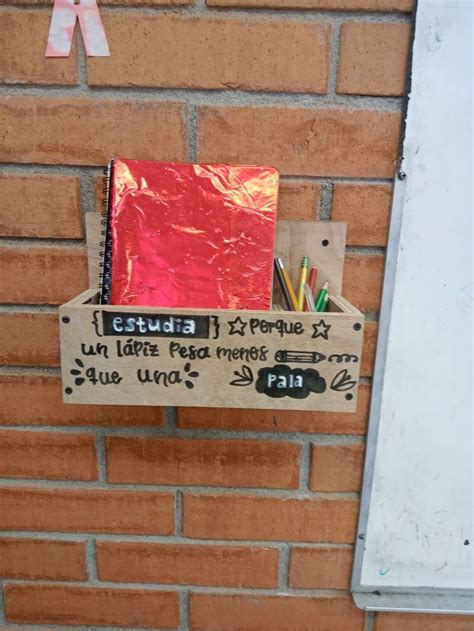 {estudia} porque
un lápiz pesa menos
que una pala